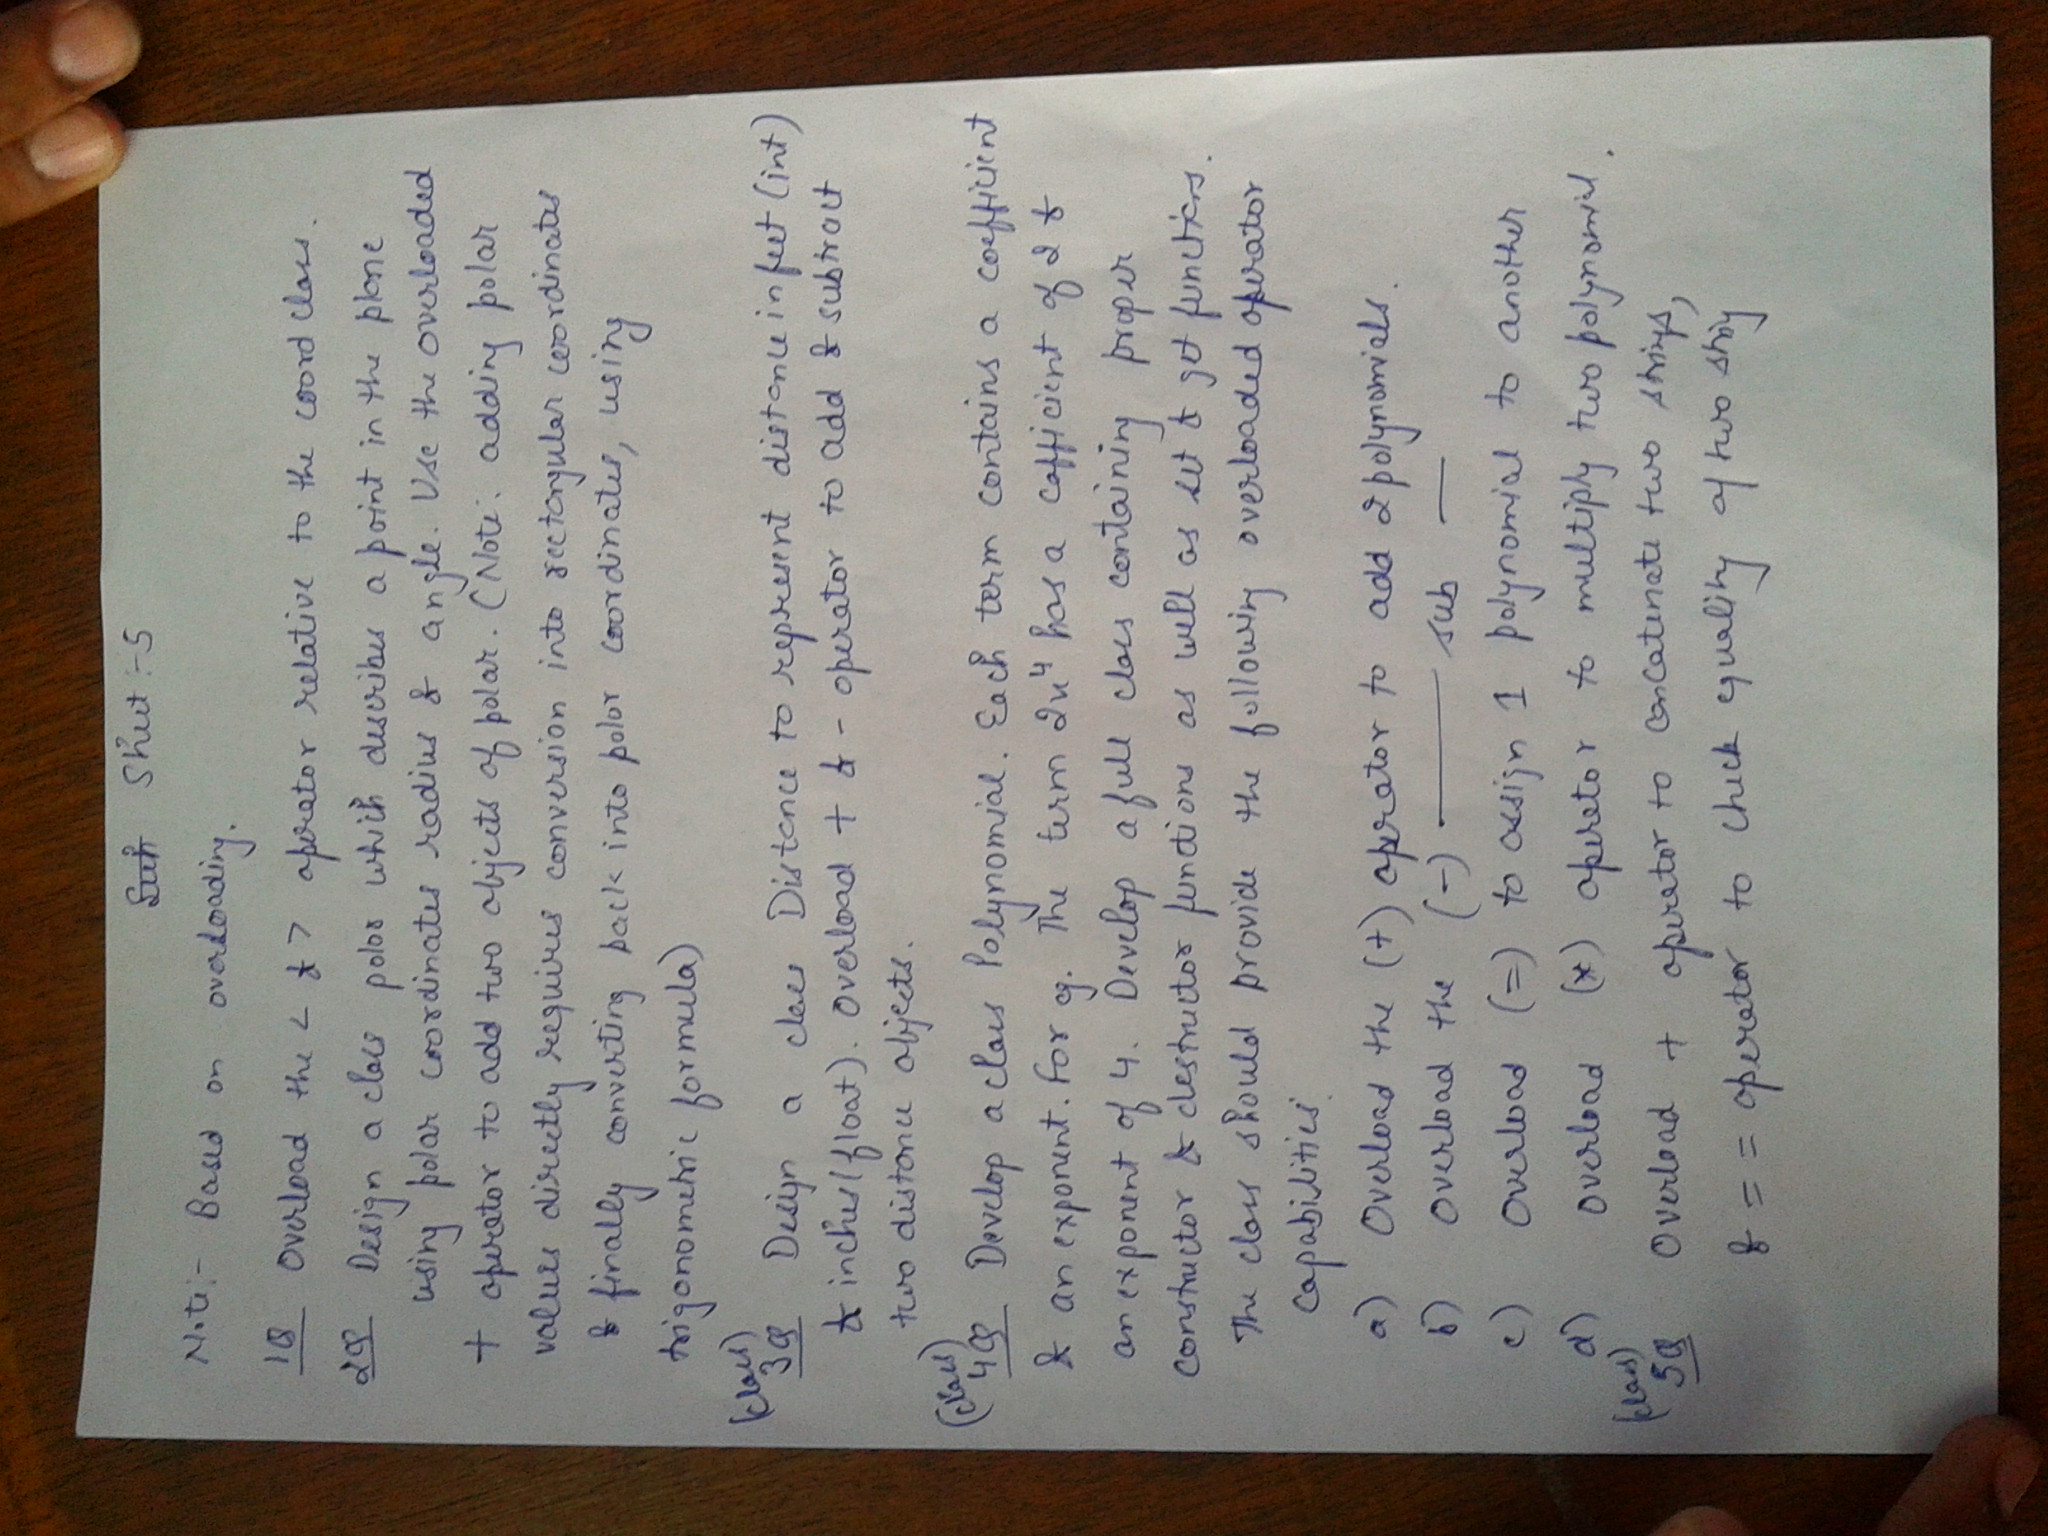 Sheet :- 5
Note :- Based on overloading.
1Q Overload the < & > operator relative to the coord class.
2Q Design a class polar which describes a point in the plane
using polar coordinates radius & angle. Use the overloaded
+ operator to add two objects of polar. (Note: adding polar
values directly requires conversion into rectangular coordinates
& finally converting back into polar coordinates, using
trigonometric formula)
(class)
3Q Design a class Distance to represent distance in feet (int)
& inches (float). Overload + & - operator to add & subtract
two distance objects.
(class)
4Q Develop a class Polynomial. Each term contains a coefficient
& an exponent. For eg. The term 2x⁴ has a cofficient of 2 &
an exponent of 4. Develop a full class containing proper
constructor & destructor functions as well as set & get functions.
The class should provide the following overloaded operator
capabilities.
a) Overload the (+) operator to add 2 polynomials.
b) Overload the (-) —— sub —
c) Overload (=) to assign 1 polynomial to another
d) Overload (*) operator to multiply two polynomial.
(class)
5Q Overload + operator to concatenate two strings,
& == operator to check equality of two string